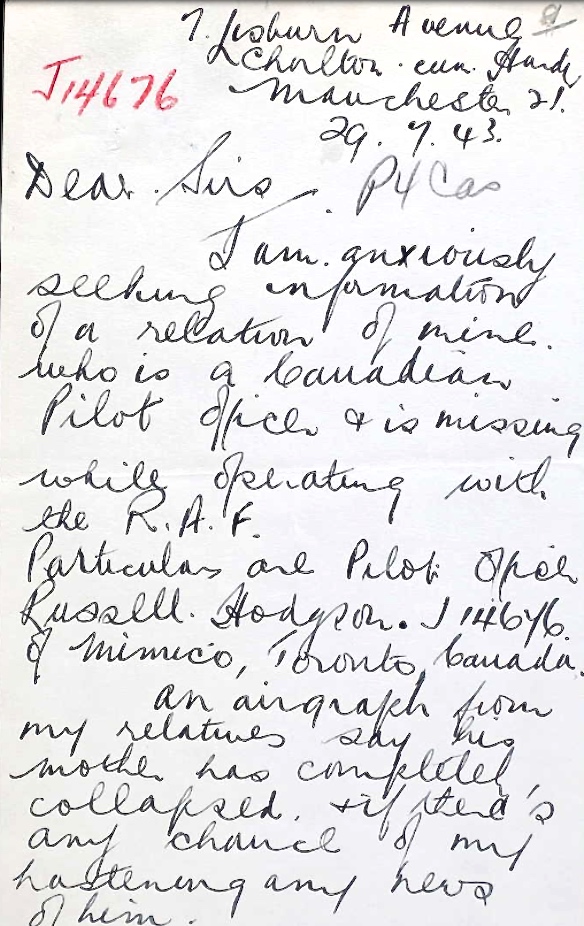 9
7. Lisburn Avenue
Chorlton. cum. Hardy
J14676
Manchester 21.
29. 7. 43.
Dear. Sirs P4 Cas
I am. anxiously
seeking information
of a relation of mine.
who is a Canadian
Pilot Officer & is missing
while operating with
the R.A.F.
Particulars are Pilot Officer
Russell. Hodgson. J14676.
of Mimico, Toronto, Canada.
An airgraph from
my relatives say his
mother has completely
collapsed. & if there's
any chance of my
hastening any news
of him.